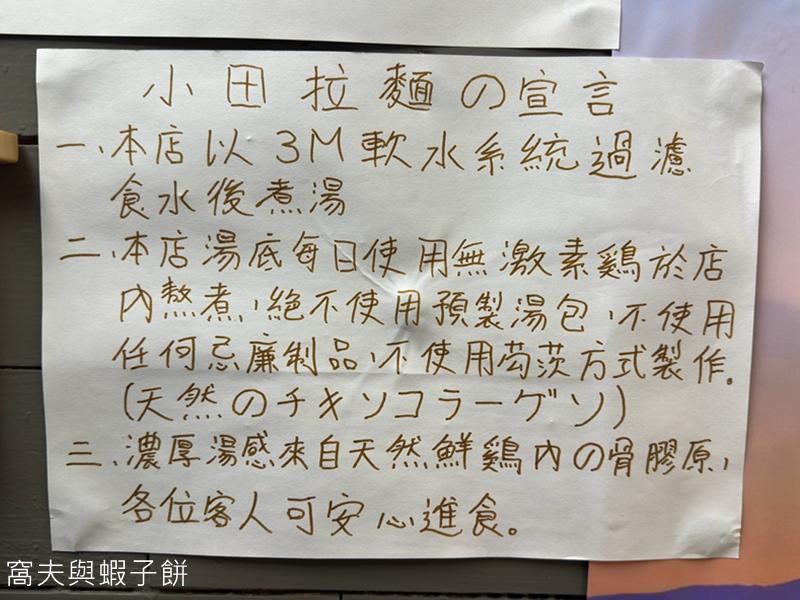 小田拉麵の宣言
一、本店以3M軟水系統過濾
食水後煮湯
二、本店湯底每日使用無激素鷄於店
內熬煮，絕不使用預製湯包，不使用
任何忌廉制品，不使用芶茨方式製作。
(天然のチキソコラーゲソ)
三、濃厚湯感來自天然鮮鷄內の骨膠原，
各位客人可安心進食。
窩夫與蝦子餅